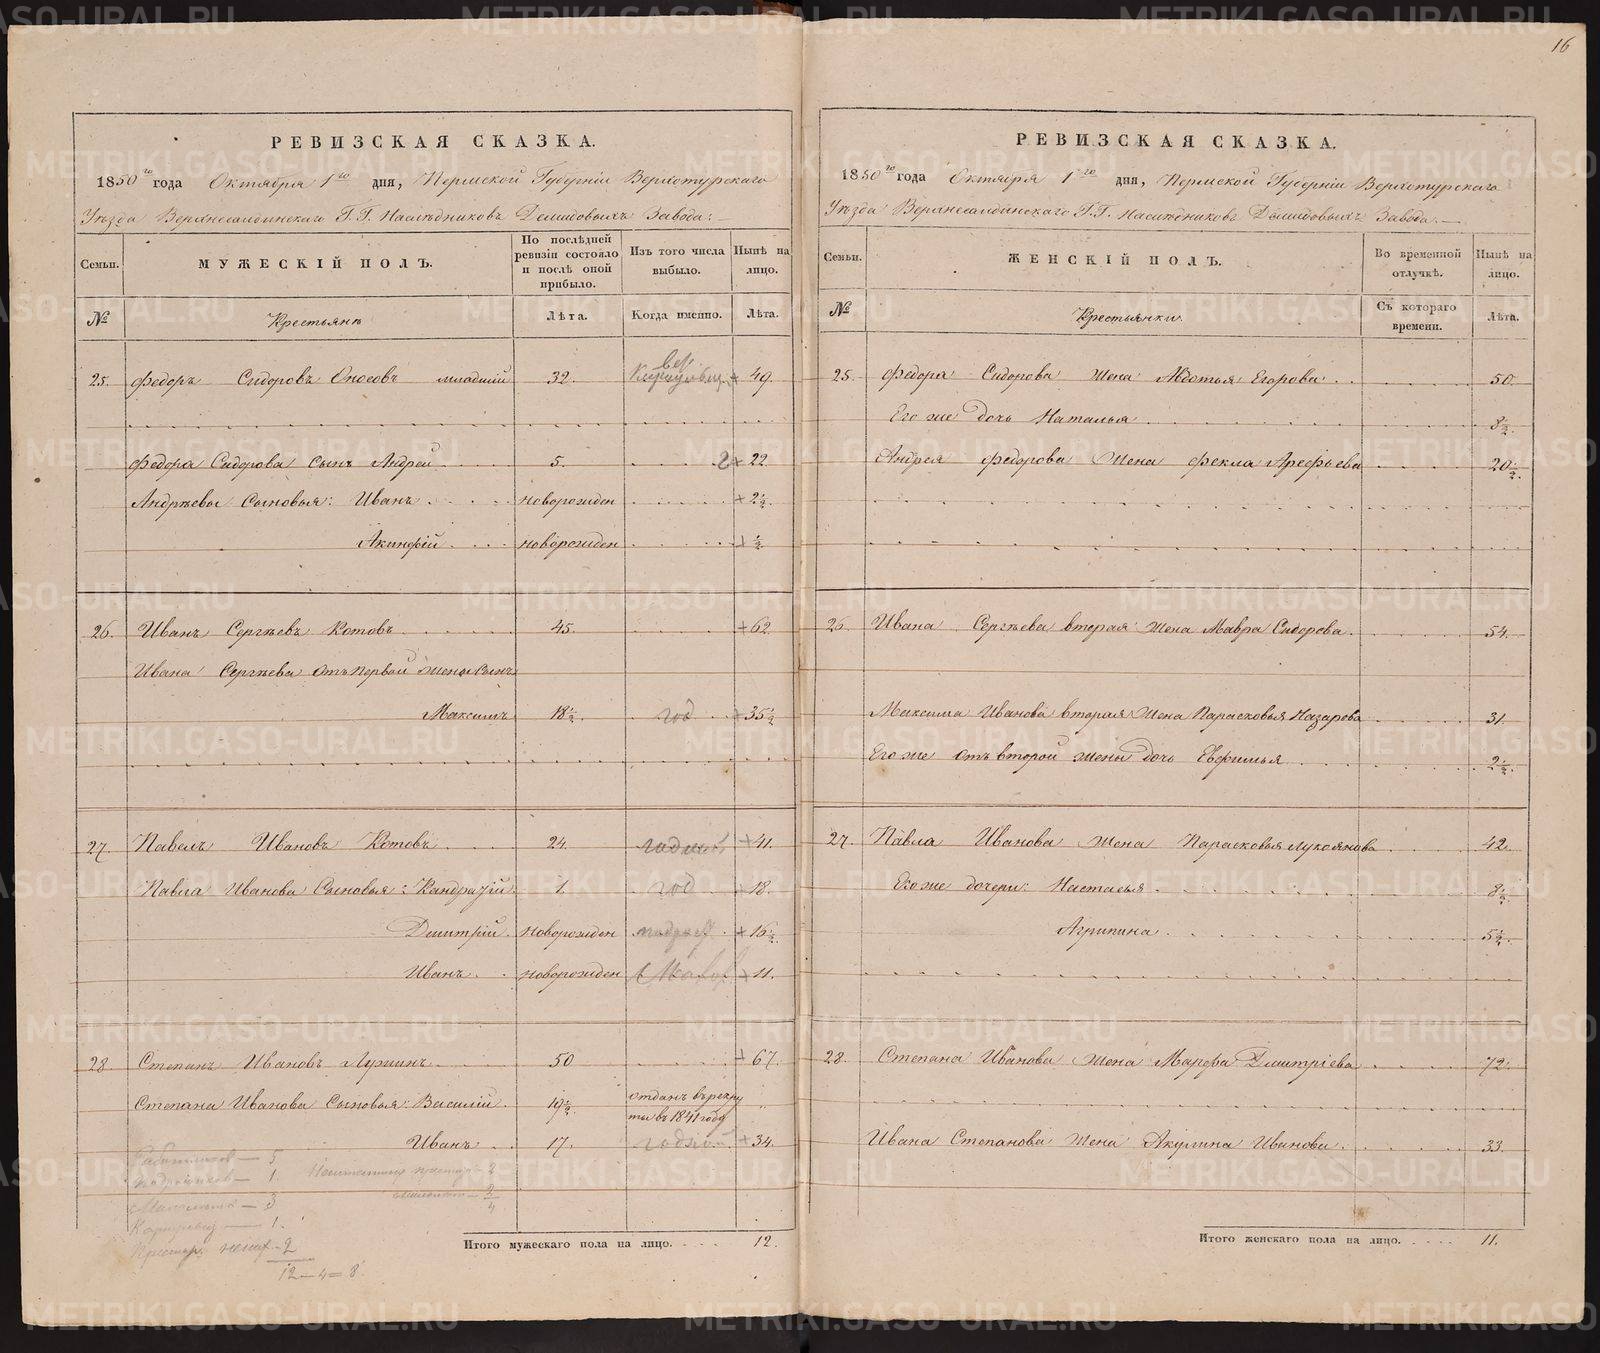 16
РЕВИЗСКАЯ СКАЗКА.
1850го года Октября 1го дня, Пермской Губерніи Верхотурскаго
Уѣзда Верхнесалдинскаго Г.Г. Наслѣдниковъ Демидовыхъ Завода:
Семьи.
МУЖЕСКІЙ ПОЛЪ.
По послѣдней ревизіи состояло и послѣ оной прибыло.
Изъ того числа выбыло.
Нынѣ на лицо.
№ Крестьянѣ Лѣта. Когда именно. Лѣта.
25. Федоръ Сидоровъ Оносовъ младшій 32. 49.
Федора Сидорова сынъ Андрей 5. 22
Андрѣевы Сыновья: Иванъ новорожден 2½
Акинфій новорожден ½
26. Иванъ Сергѣевъ Котовъ 45. 62
Ивана Сергѣева отъ первой жены сынъ
Максимъ 18½ год 35½
27. Павелъ Ивановъ Котовъ 24 годной 41.
Павла Иванова Сыновья: Кандратій 1. год 18.
Дмитрій новорожден 16½
Иванъ новорожден 11.
28 Степанъ Ивановъ Лушинъ 50 67.
Степана Иванова Сыновья: Василій 19½ отданъ въ рекру
ты въ 1841 году
Иванъ 17. годной 34.
Работников — 5
— 1
— 3
— 1.
- 2
12 — 4 = 8.
Итого мужескаго пола на лицо. 12.
РЕВИЗСКАЯ СКАЗКА.
1850го года Октября 1го дня, Пермской Губерніи Верхотурскаго
Уѣзда Верхнесалдинскаго Г.Г. Наслѣдниковъ Демидовыхъ Завода.
Семьи.
ЖЕНСКІЙ ПОЛЪ.
Во временной отлучкѣ.
Нынѣ на лицо.
№ Крестьянки Съ котораго времени. Лѣта.
25. Федора Сидорова жена Авдотья Егорова 50.
Его же дочь Наталья 8½
Андрея Федорова жена Фекла Арефьева 20½
26 Ивана Сергѣева вторая жена Мавра Сидорова 54.
Максима Иванова вторая жена Парасковья Назарова 31.
Его же отъ второй жены дочь Евфимья 2½
27. Павла Иванова жена Парасковья Лукоянова 42
Его же дочери: Настасья 8½
Агрипина 5½
28. Степана Иванова жена Марфа Дмитріева 72.
Ивана Степанова жена Акулина Иванова 33
Итого женскаго пола на лицо. 11.
METRIKI.GASO-URAL.RU